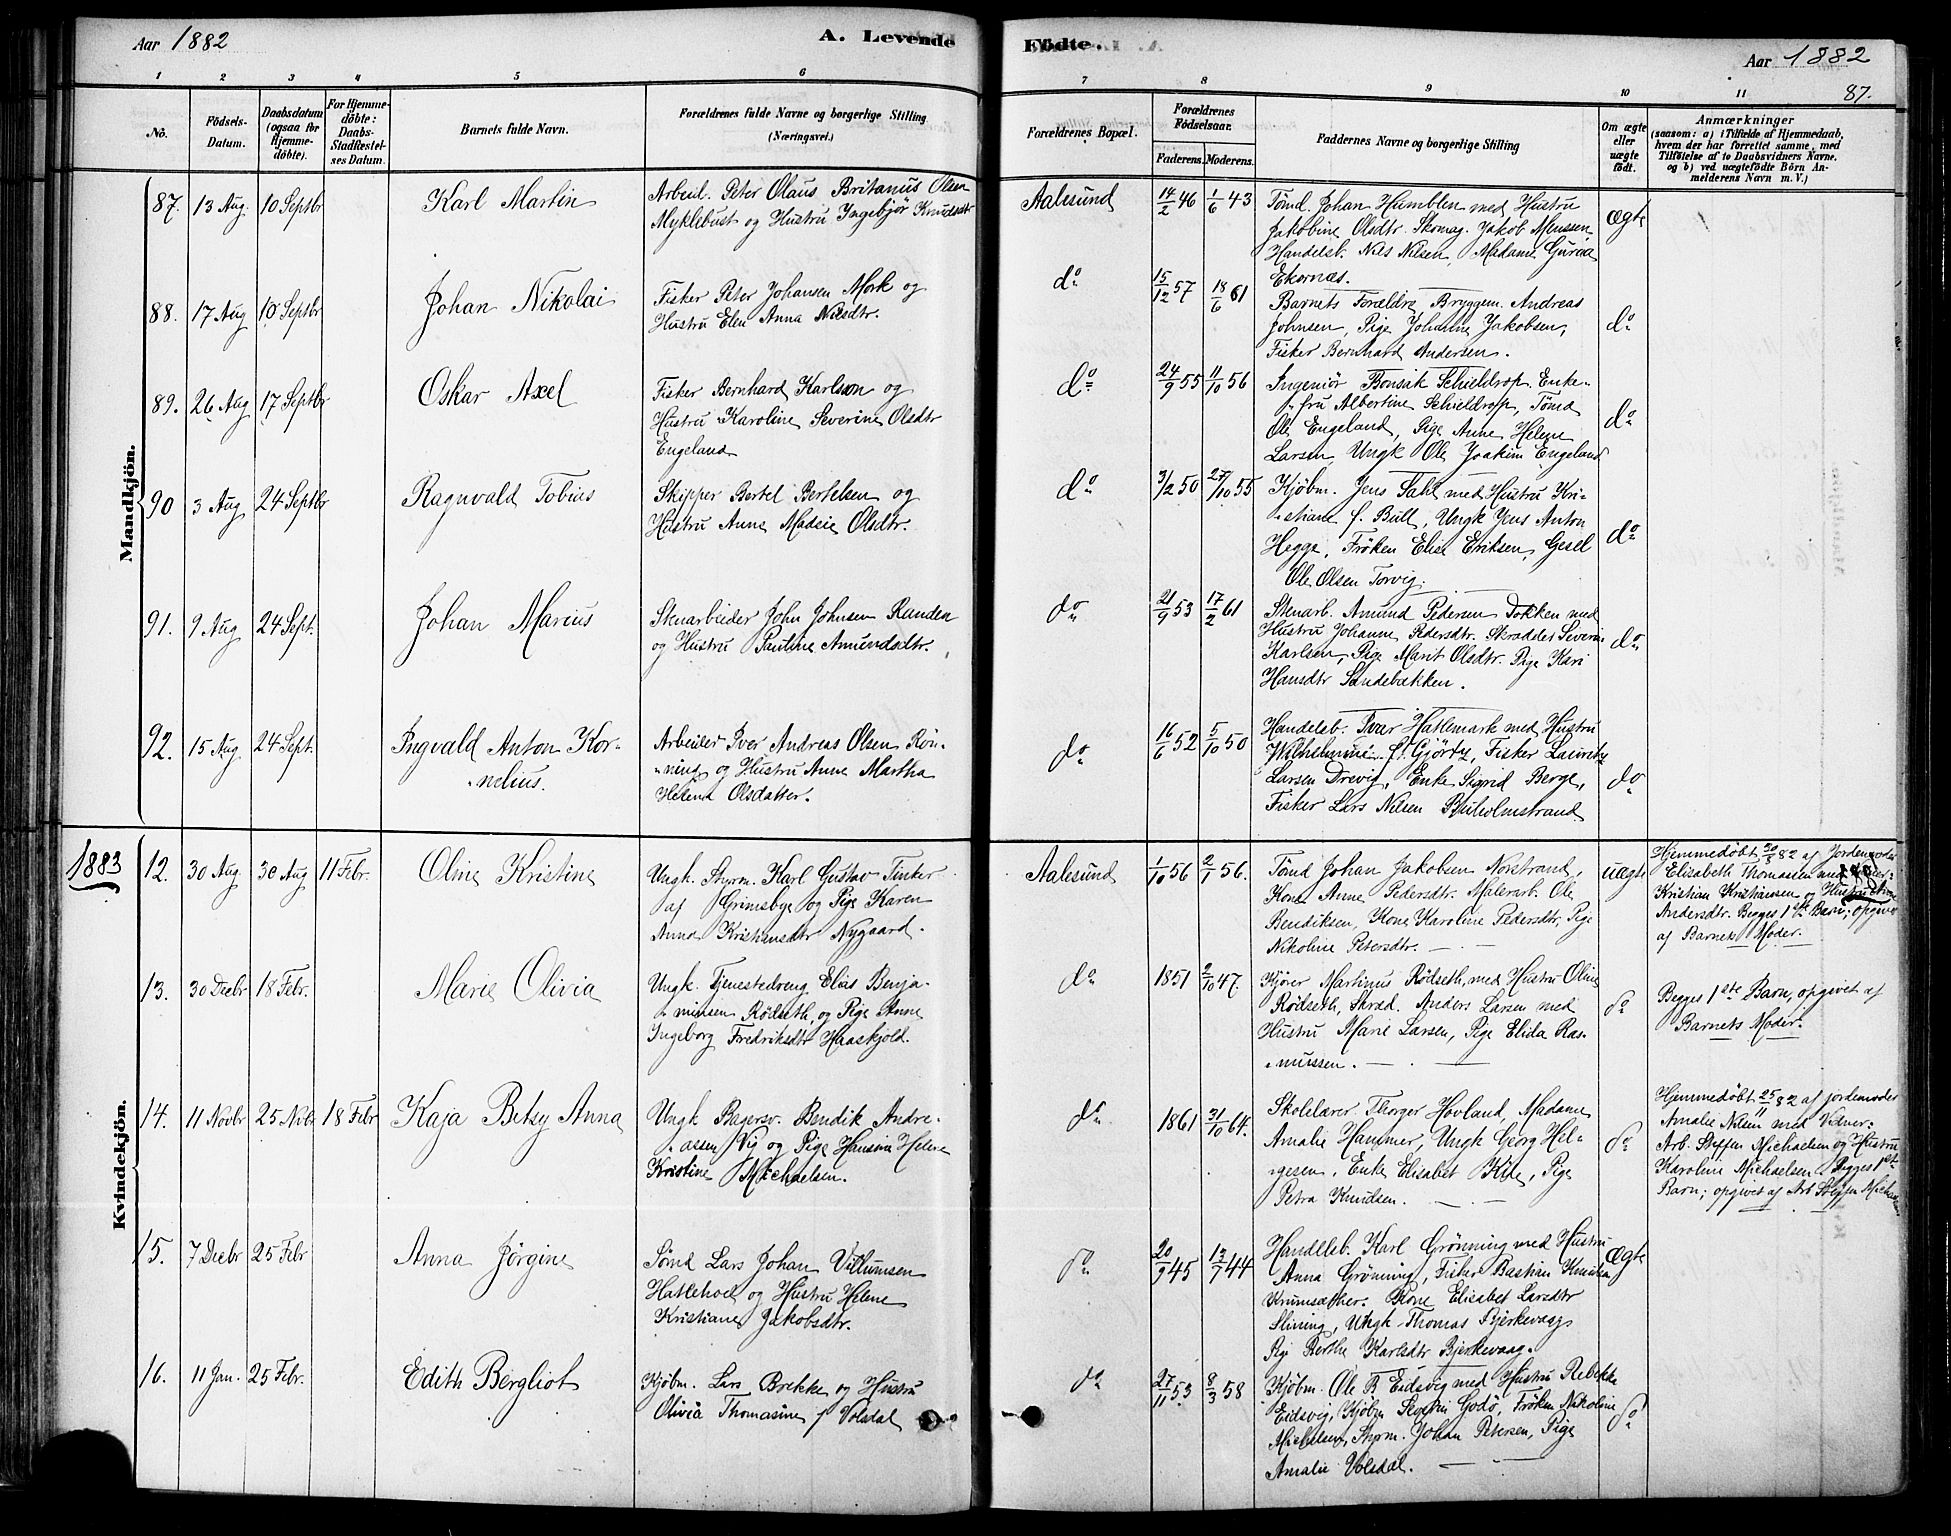 Aar 1882
A. Levende
Födte.
Aar 1882
87.
1 2 3 4 5 6 7 8 9 10 11
No.
Födsels-
Datum.
Daabsdatum
(ogsaa for
Hjemme-
döbte).
For Hjemme-
döbte:
Daabs-
Stadfæstel-
ses Datum.
Barnets fulde Navn.
Forældrenes fulde Navne og borgerlige Stilling
(Næringsvei.)
Forældrenes Bopæl.
Forældrenes
Födselsaar.
Faderens. Moderens.
Faddernes Navne og borgerlige Stilling
Om ægte
eller
uægte
födt.
Anmærkninger
(saasom: a) i Tilfælde af Hjemmedaab,
hvem der har forrettet samme, med
Tilföielse af to Daabsvidners Navne.
og b) ved uægtefödte Börn An-
melderens Navn m. V.)
Mandkjön.
87. 13 Aug. 10 Septbr
Karl Martin
Arbeid. Peter Olaus Britanus Olsen
Myklebust og Hustru Ingebjør Knudsdtr
Aalesund
14/2 46 1/6 43
Tömd. Johan Humblen med Hustru
Jakobine Olsdtr. Skomag. Jakob Monssen
Handelsb. Nils Nilsen, Madame Gurine
Ekornæs.
Ægte
88. 17 Aug 10 Septbr
Johan Nikolai
Fisker Peter Johansen Mork og
Hustru Elen Anna Nilsdtr.
do
15/12 57 18/6 61
Barnets Forældre, Bryggem. Andreas
Johnsen, Pige Johanne Jakobsen,
Fisker Bernhard Andersen.
do
89. 26 Aug 17 Septbr
Oskar Axel
Fisker Bernhard Karlson og
Hustru Karoline Severine Olsdtr
Engeland
do
24/9 55 11/10 56
Ingeniör Bonsak Schieldrop, Enke-
fru Albertine Schieldrop, Tömd
Ole Engeland, Pige Anne Helene
Larsen, Ungk Ole Joakim Engeland
do
90 3 Aug 24 Septbr
Ragnvald Tobius
Skipper Bertel Bertelsen og
Hustru Anne Madsie Olsdtr.
do
3/2 50 27/10 55
Kjöbm. Jens Dahl med Hustru Kri-
stiane f. Bull, Ungk Jens Anton
Hegge, Fröken Elise Eriksen, Gesel
Ole Olsen Torvig.
do
91. 9 Aug 24 Sept.
Johan Marius
Stenarbieder John Johnsen Randen
og Hustru Pauline Amundsdtr.
do
21/9 53 17/2 61
Stenarb. Amund Pedersen Dokken med
Hustru Johanne Pedersdtr. Skrædder Severin
Karlsen, Pige Marit Olsdtr. Pige Kari
Hansdtr Sandebakken.
do
92. 15 Aug 24 Sept.
Ingvald Anton Kor-
nelius.
Arbeider Iver Andreas Olsen Rön-
ning og Hustru Anne Martha
Helena Olsdatter.
do
16/6 52 5/10 50
Handelsb. Ivar Hatlemark med Hustru
Wilhelmine f. Gjörtz, Fisker Lauritz
Larsen Drevig, Enke Sigrid Berge,
Fisker Lars Nilsen Buholmstrand
do
1883
Kvindekjön.
12. 30 Aug. 30 Aug 11 Febr.
Oline Kristine
Ungk. Styrm. Karl Gustav Tinker
af Grimsbye og Pige Karen
Anna Kristiansdtr Nygaard.
Aalesund
1/10 56 2/1 56.
Tömd Johan Jakobsen Norstrand,
Kone Anne Pedersdtr. Malerarb. Ole
Bendiksen, Kone Karoline Pedersdtr, Pige
Nikoline Petersdtr.
uægte
Hjemmedöbt 30/8 82 af Jordemoder
Elisabeth Thomassen
Kristian Kristiansen og Hustru
Andersdtr. Begges 1ste Barn; opgivet
af Barnets Moder.
13. 30 Decbr 18 Febr.
Marie Olivia
Ungk. Tjenestedreng Elias Benja-
minsen Rödseth, og Pige Anne
Ingeborg Fredriksdtr Haaskjold.
do
1851 2/10 47.
Kjörer Martinus Rödseth, med Hustru Oline
Rödseth, Skræd. Anders Larsen med
Hustru Marie Larsen, Pige Elida Ras-
mussen.
do
Begges 1ste Barn, opgivet af
Barnets Moder.
14. 11 Novbr 25 Nvbr 18 Febr
Kaja Betsy Anna
Ungk Bagersv. Bendik Andre-
assen Vig og Pige Hansine Helene
Kristine Michaelsen.
do
1861 31/10 64.
Skolelærer Thorger Hovland, Madame
Amalie Hammer, Ungk Georg Hel-
gesen, Enke Elisabet Kile, Pige
Petra Knudsen.
do
Hjemmedöbt 25/11 82 af jordemoder
Amalie Nilsen med Vidner
Arb. Steffen Michaelsen og Hustru
Karoline Michaelsen. Begges 1ste
Barn; opgivet af Arb Steffen Michaelsen
15. 7 Decbr 25 Febr
Anna Jörgine
Tömd Lars Johan Villumsen
Hatlehoel og Hustru Helene
Kristiane Jakobsdtr.
do
20/9 45 13/7 44
Handelsb. Karl Grönning med Hustru
Anna Grönning, Fisker Bastian Knudsen
Krumsæther. Kone Elisabet Larsdtr
Slining, Ungk Thomas Bjerkevaag
Pig Berthe Karlsdtr Bjerkevaag.
Ægte
16. 11 Jan. 25 Febr.
Edith Bergliot
Kjöbm. Lars Brekke og Hustru
Olivia Thomasine f Volsdal
do
27/11 53 8/3 58
Kjöbm. Ole B Eidsvig med Hustru Rebekka
Eidsvig, Kjöbm Severin Godö, Fröken Nikoline
Michelsen, Styrm. Johan Petersen, Pige
Amalie Volsdal.
do